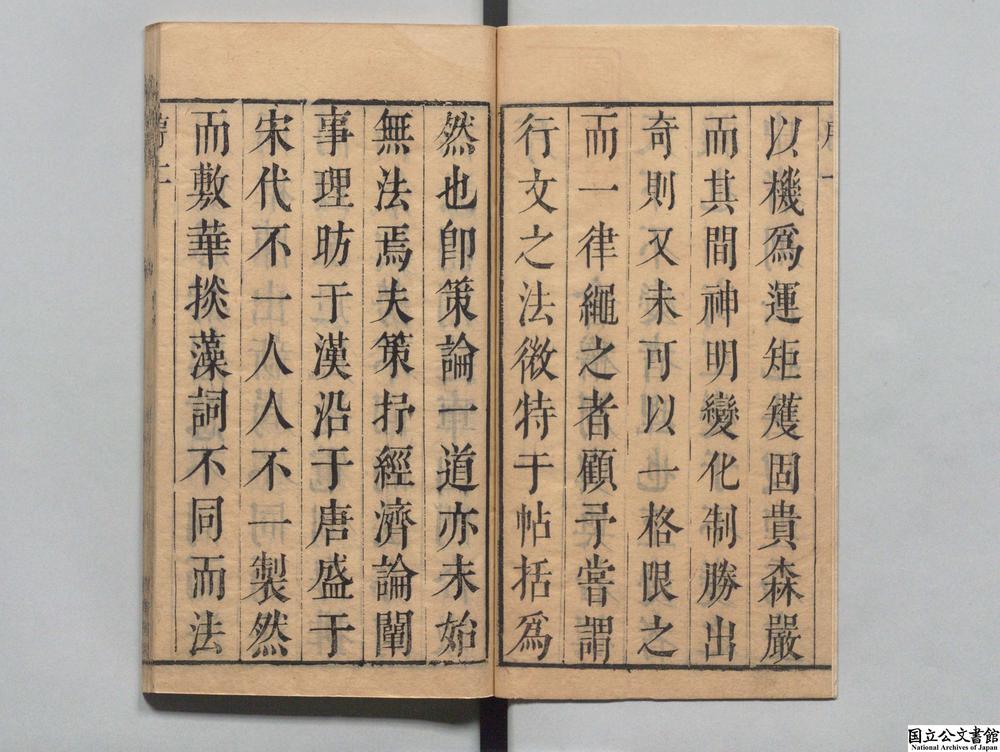 以機爲運矩矱固貴森嚴
而其間神明變化制勝出
奇則又未可以一格限之
而一律繩之者顧予嘗謂
行文之法微特于帖括爲
然也卽策論一道亦未始
無法焉夫策抒經濟論闡
事理昉于漢沿于唐盛于
宋代不一人人不一製然
而敷華掞藻詞不同而法
国立公文書館
National Archives of Japan